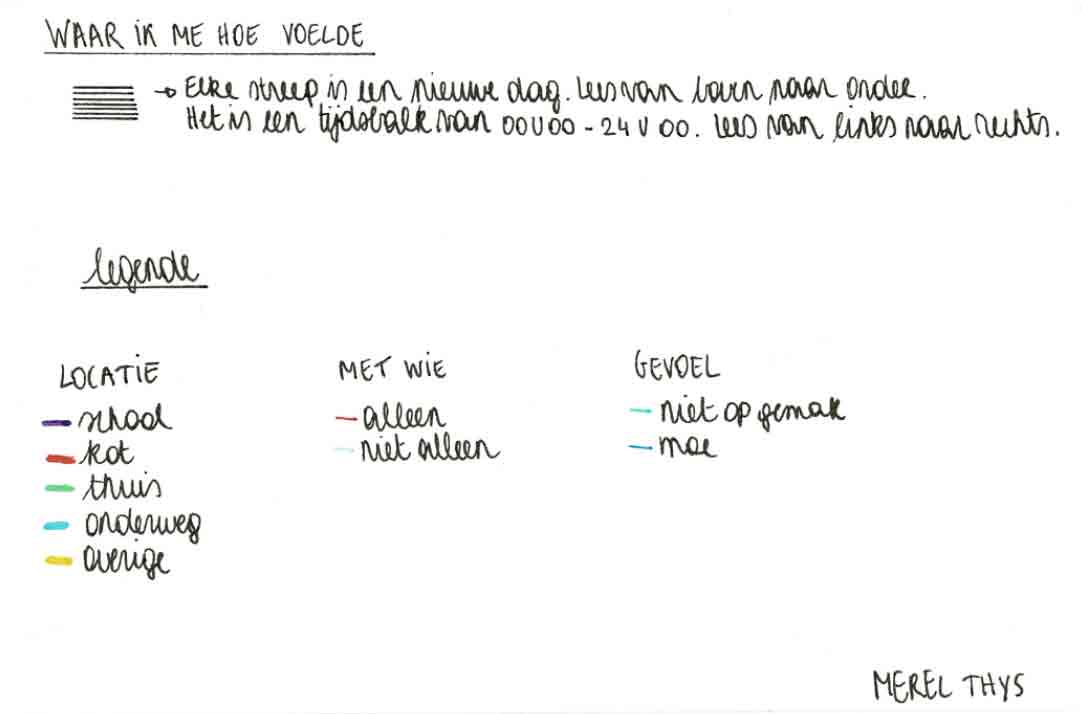 WAAR IK ME HOE VOELDE
→ Elke streep is een nieuwe dag. Lees van boven naar onder.
Het is een tijdsbalk van 00U00 - 24U00. Lees van links naar rechts.
legende
LOCATIE
school
kot
thuis
onderweg
overige
MET WIE
alleen
niet alleen
GEVOEL
niet op gemak
moe
MEREL THYS